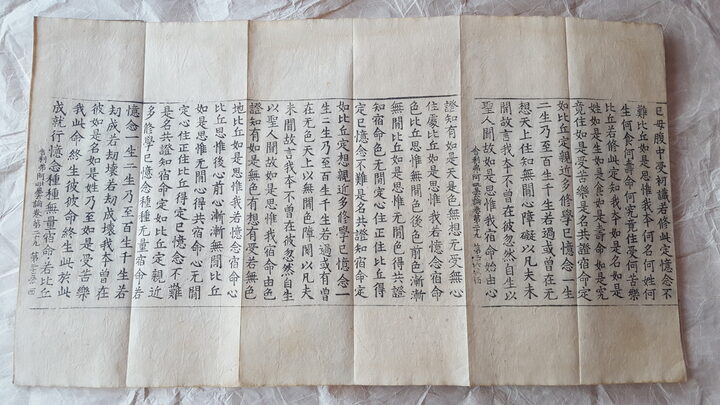 已母腹中受初識若修此定憶念不
難比丘如是思惟我本何名何姓何
生何食何壽命何究竟住受何苦樂
比丘若修此定知我本如是名如是
姓如是生如是食如是壽命如是究
竟住如是受苦樂是名共證宿命定
如比丘定親近多修學已憶念一生
二生乃至百生千生若過或曾在无
想天上住知無間心障礙以凡夫未
聞故言我本不曾在彼忽然自生以
聖人聞故如是思惟我宿命始由心
舍利弗阿毗曇論卷第二九
證知有如是天是色無想无受無心
住處比丘如是思惟我若憶念宿命
色比丘如是思惟無間色後色前色漸漸
無間比丘如是思惟無間色得共證
知宿命色無間定心住正住比丘得
定已憶念不難是名共證知宿命定
如比丘定想親近多修學已憶念一
生二生乃至百生千生若過或有曾
在无色天上以無間色障閡以凡夫
未聞故言我本不曾在彼忽然自生
以聖人聞故如是思惟我宿命由色
證知有如是無色有想有受若無色
地比丘如是思惟我若憶念宿命心
比丘如是思惟後心前心漸漸無間比丘
如是思惟无間心得共宿命心無間
定心住正住比丘得定已憶念不難
是名共證知宿命定如比丘定親近
多修學已憶念種種无量宿命若
憶念一生二生乃至百生千生若
劫成若劫壞若劫成壞我本曾在
彼如是名如是姓乃至如是受苦樂
我此命終生彼彼命終生此於此
舍利弗阿毗曇論卷第二九
成就行憶念種種無量宿命若比丘